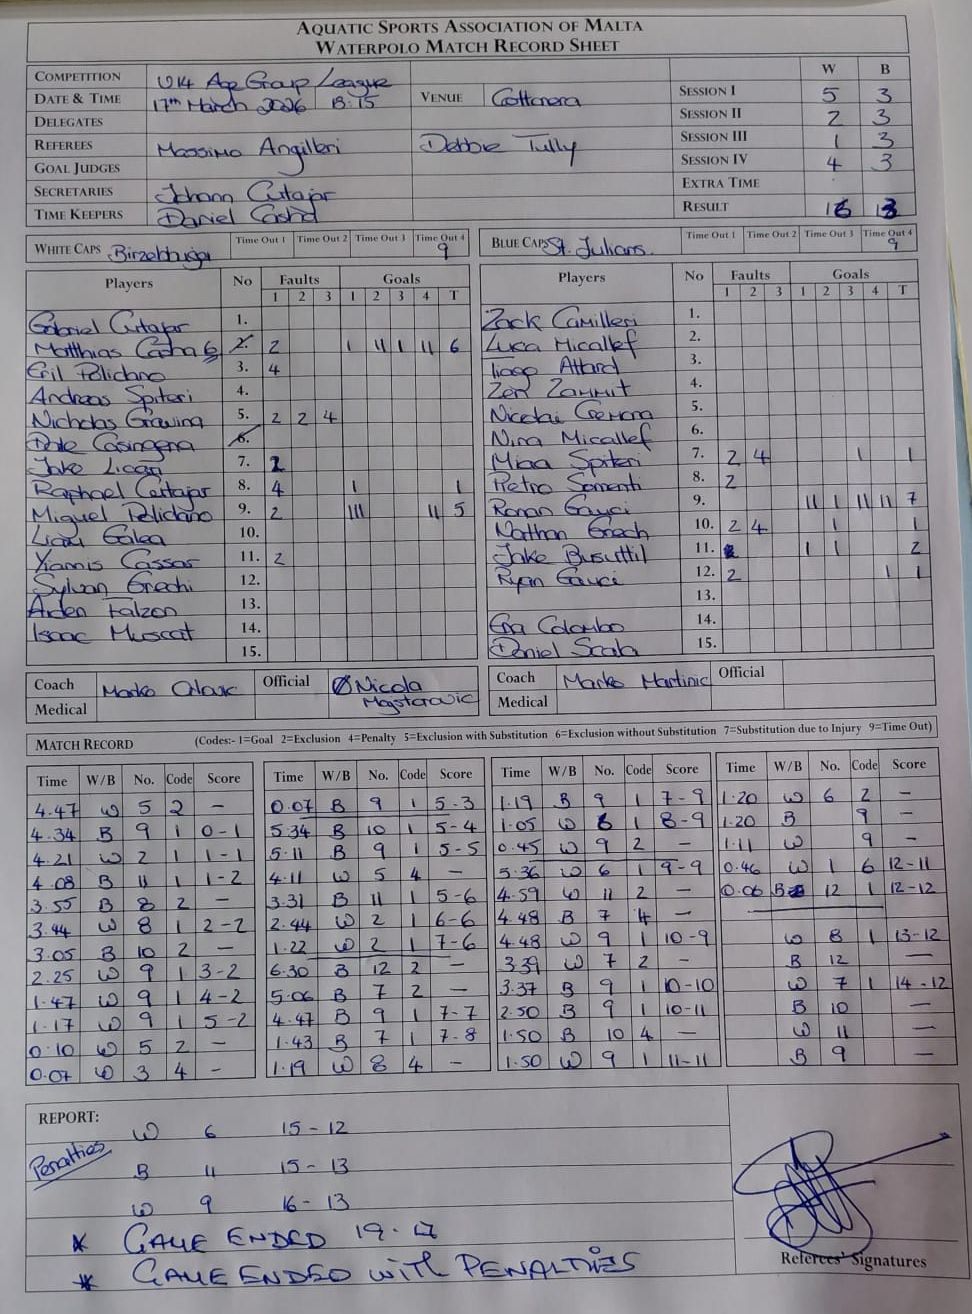 AQUATIC SPORTS ASSOCIATION OF MALTA
WATERPOLO MATCH RECORD SHEET
COMPETITION U14 Age Group League W B
DATE & TIME 17th March 2026 13:15 VENUE Cottonera SESSION I 5 3
DELEGATES SESSION II 2 3
REFEREES Massimo Angilleri Debbie Tully SESSION III 1 3
GOAL JUDGES SESSION IV 4 3
SECRETARIES Johann Cutajar EXTRA TIME
TIME KEEPERS Daniel RESULT 16 13
WHITE CAPS Birzebbugia Time Out 1 Time Out 2 Time Out 3 Time Out 4 9
BLUE CAPS St. Julians. Time Out 1 Time Out 2 Time Out 3 Time Out 4 9
Players No Faults Goals
1 2 3 1 2 3 4 T
Gabriel Cutajar 1.
Matthias 6 2. 2 I II I II 6
Gil Policiano 3. 4
Andreas Spiteri 4.
Nicholas Gravina 5. 2 2 4
Dale 6.
Jake Licari 7. 2
Raphael Cutajar 8. 4 I 1
Miguel Policiano 9. 2 III II 5
Liam Galea 10.
Yiannis Cassar 11. 2
Sylvan Grechi 12.
Aiden Falzon 13.
Isaac Muscat 14.
15.
Players No Faults Goals
1 2 3 1 2 3 4 T
Zack Camilleri 1.
Luca Micallef 2.
Tiago Attard 3.
Zen Zammit 4.
Nicolai Cremona 5.
Nina Micallef 6.
Mina Spiteri 7. 2 4 I 1
Pietro 8. 2
Ronan Gauci 9. II I II II 7
Nathan Grech 10. 2 4 I 1
Jake Busuttil 11. I I 2
Ryan Gauci 12. 2 I 1
13.
Gia Colombo 14.
Daniel 15.
Coach Marko Official Nicola
Medical
Coach Marko Martinic Official
Medical
MATCH RECORD (Codes:- 1=Goal 2=Exclusion 4=Penalty 5=Exclusion with Substitution 6=Exclusion without Substitution 7=Substitution due to Injury 9=Time Out)
Time W/B No. Code Score
4.47 W 5 2 -
4.34 B 9 1 0-1
4.21 W 2 1 1-1
4.08 B 11 1 1-2
3.55 B 8 2 -
3.44 W 8 1 2-2
3.05 B 10 2 -
2.25 W 9 1 3-2
1.47 W 9 1 4-2
1.17 W 9 1 5-2
0.10 W 5 2 -
0.07 W 3 4 -
Time W/B No. Code Score
0.07 B 9 1 5-3
5.34 B 10 1 5-4
5.11 B 9 1 5-5
4.11 W 5 4 -
3.31 B 11 1 5-6
2.44 W 2 1 6-6
1.22 W 2 1 7-6
6.30 B 12 2 -
5.06 B 7 2 -
4.47 B 9 1 7-7
1.43 B 7 1 7-8
1.19 W 8 4 -
Time W/B No. Code Score
1.19 B 9 1 7-9
1.05 W 6 1 8-9
0.45 W 9 2 -
5.36 W 6 1 9-9
4.59 W 11 2 -
4.48 B 7 4 -
4.48 W 9 1 10-9
3.39 W 7 2 -
3.37 B 9 1 10-10
2.50 B 9 1 10-11
1.50 B 10 4 -
1.50 W 9 1 11-11
Time W/B No. Code Score
1.20 W 6 2 -
1.20 B 9 -
1.11 W 9 -
0.46 W 1 6 12-11
0.06 B 12 1 12-12
W 8 1 13-12
B 12 -
W 7 1 14-12
B 10 -
W 11 -
B 9 -
REPORT:
Penalties
W 6 15-12
B 11 15-13
W 9 16-13
* GAME ENDED 19.17
* GAME ENDED WITH PENALTIES
Referees' Signatures